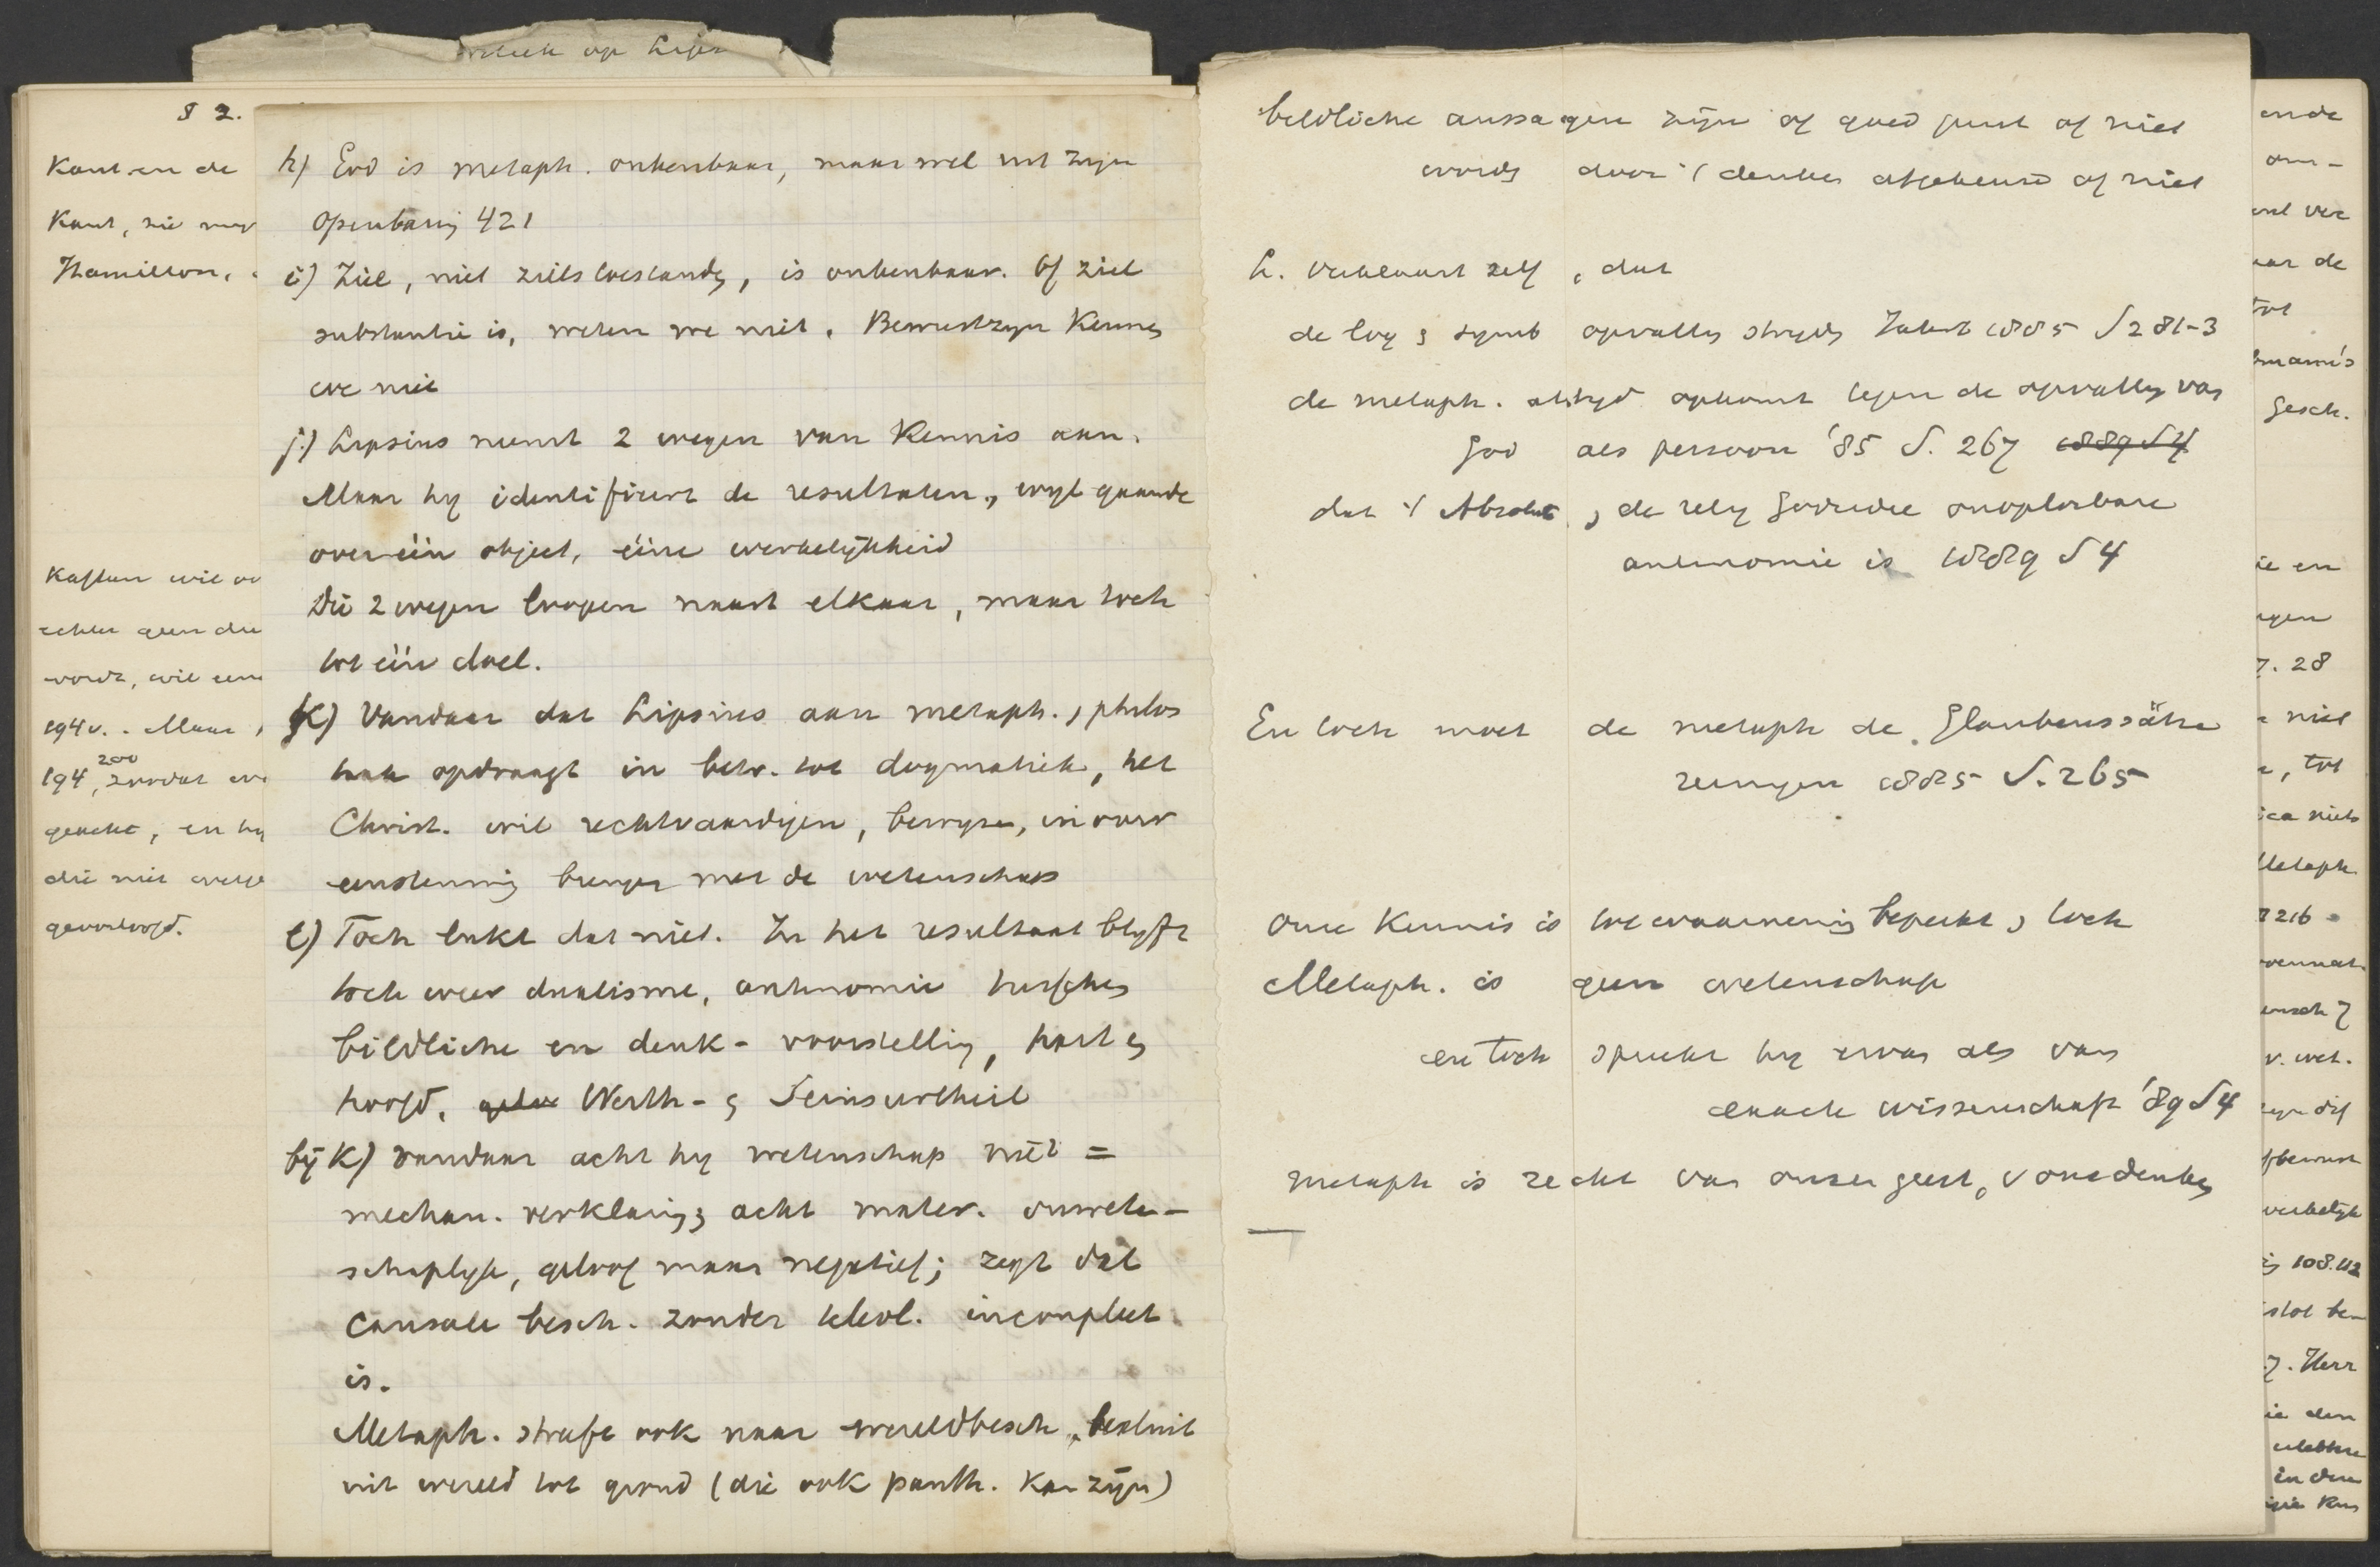 § 2.
Kant en de
Kant, zie
Hamilton.
Kaftan wil
echter geen
wordt, wil
194v. Maar
200
194, zoodat
geacht, en hy
die niet
geoorloofd.
op Lips
h) God is metaph. onkenbaar, maar wel uit zijn
openbaring 421
i) Ziel, niet zielstoestandn, is onkenbaar. Of ziel
substantie is, weten we niet. Bewustzyn kennen
we niet
j.) Lipsius neemt 2 wegen van kennis aan.
Maar hy identificeert de resultaten, wyl gaande
over één object, ééne werkelijkheid
Die 2 wegen loopen naast elkaar, maar toch
tot één doel.
k) Vandaar dat Lipsius aan metaph., philos
taak opdraagt in betr. tot dogmatiek, het
Christ. wil rechtvaardigen, bewyzen, in over
eenstemming brengen met de wetenschap
l) Toch lukt dat niet. In het resultaat blyft
toch weer dualisme, antinomie tusschen
bildliche en denk-voorstelling, hart en
hoofd, Werth- en Seinsurtheil
bij k) vandaar acht hy wetenschap niet =
mechan. verklaring; acht mater. onweten-
schaplyk, geloof maar negatief; zegt dat
causale besch. zonder teleol. incompleet
is.
Metaph. streeft ook naar wereldbesch, besluit
uit wereld tot grond (die ook panth. kan zijn)
beeldliche aussagen zijn of goed juist of niet
wordt door 't denken afgekeurd of niet
L. verklaart zelf, dat
de log en symb opvatting strydt Zelfst 1885 S 281-3
de metaph. altyd opkomt tegen de opvatting van
God als persoon '85 S. 267 1889 S 4
dat 't Absolute, de relig Godsidee onoplosbare
antinomie is 1889 S 4
En toch moet de metaph de Glaubenssätze
reinigen 1885 S. 265
Onze kennis is tot waarneming beperkt, toch
Metaph. is geen wetenschap
en toch spreekt hy ervan als van
exacte wissenschaft '89 S 4
metaph is recht van onzen geest, v ons denken
ende
om-
ver
aar de
tot
gesch.
ie en
7. 28
niet
, tot
ica niets
Metaph
216
v. wet.
108.112
7. Herr
ie den